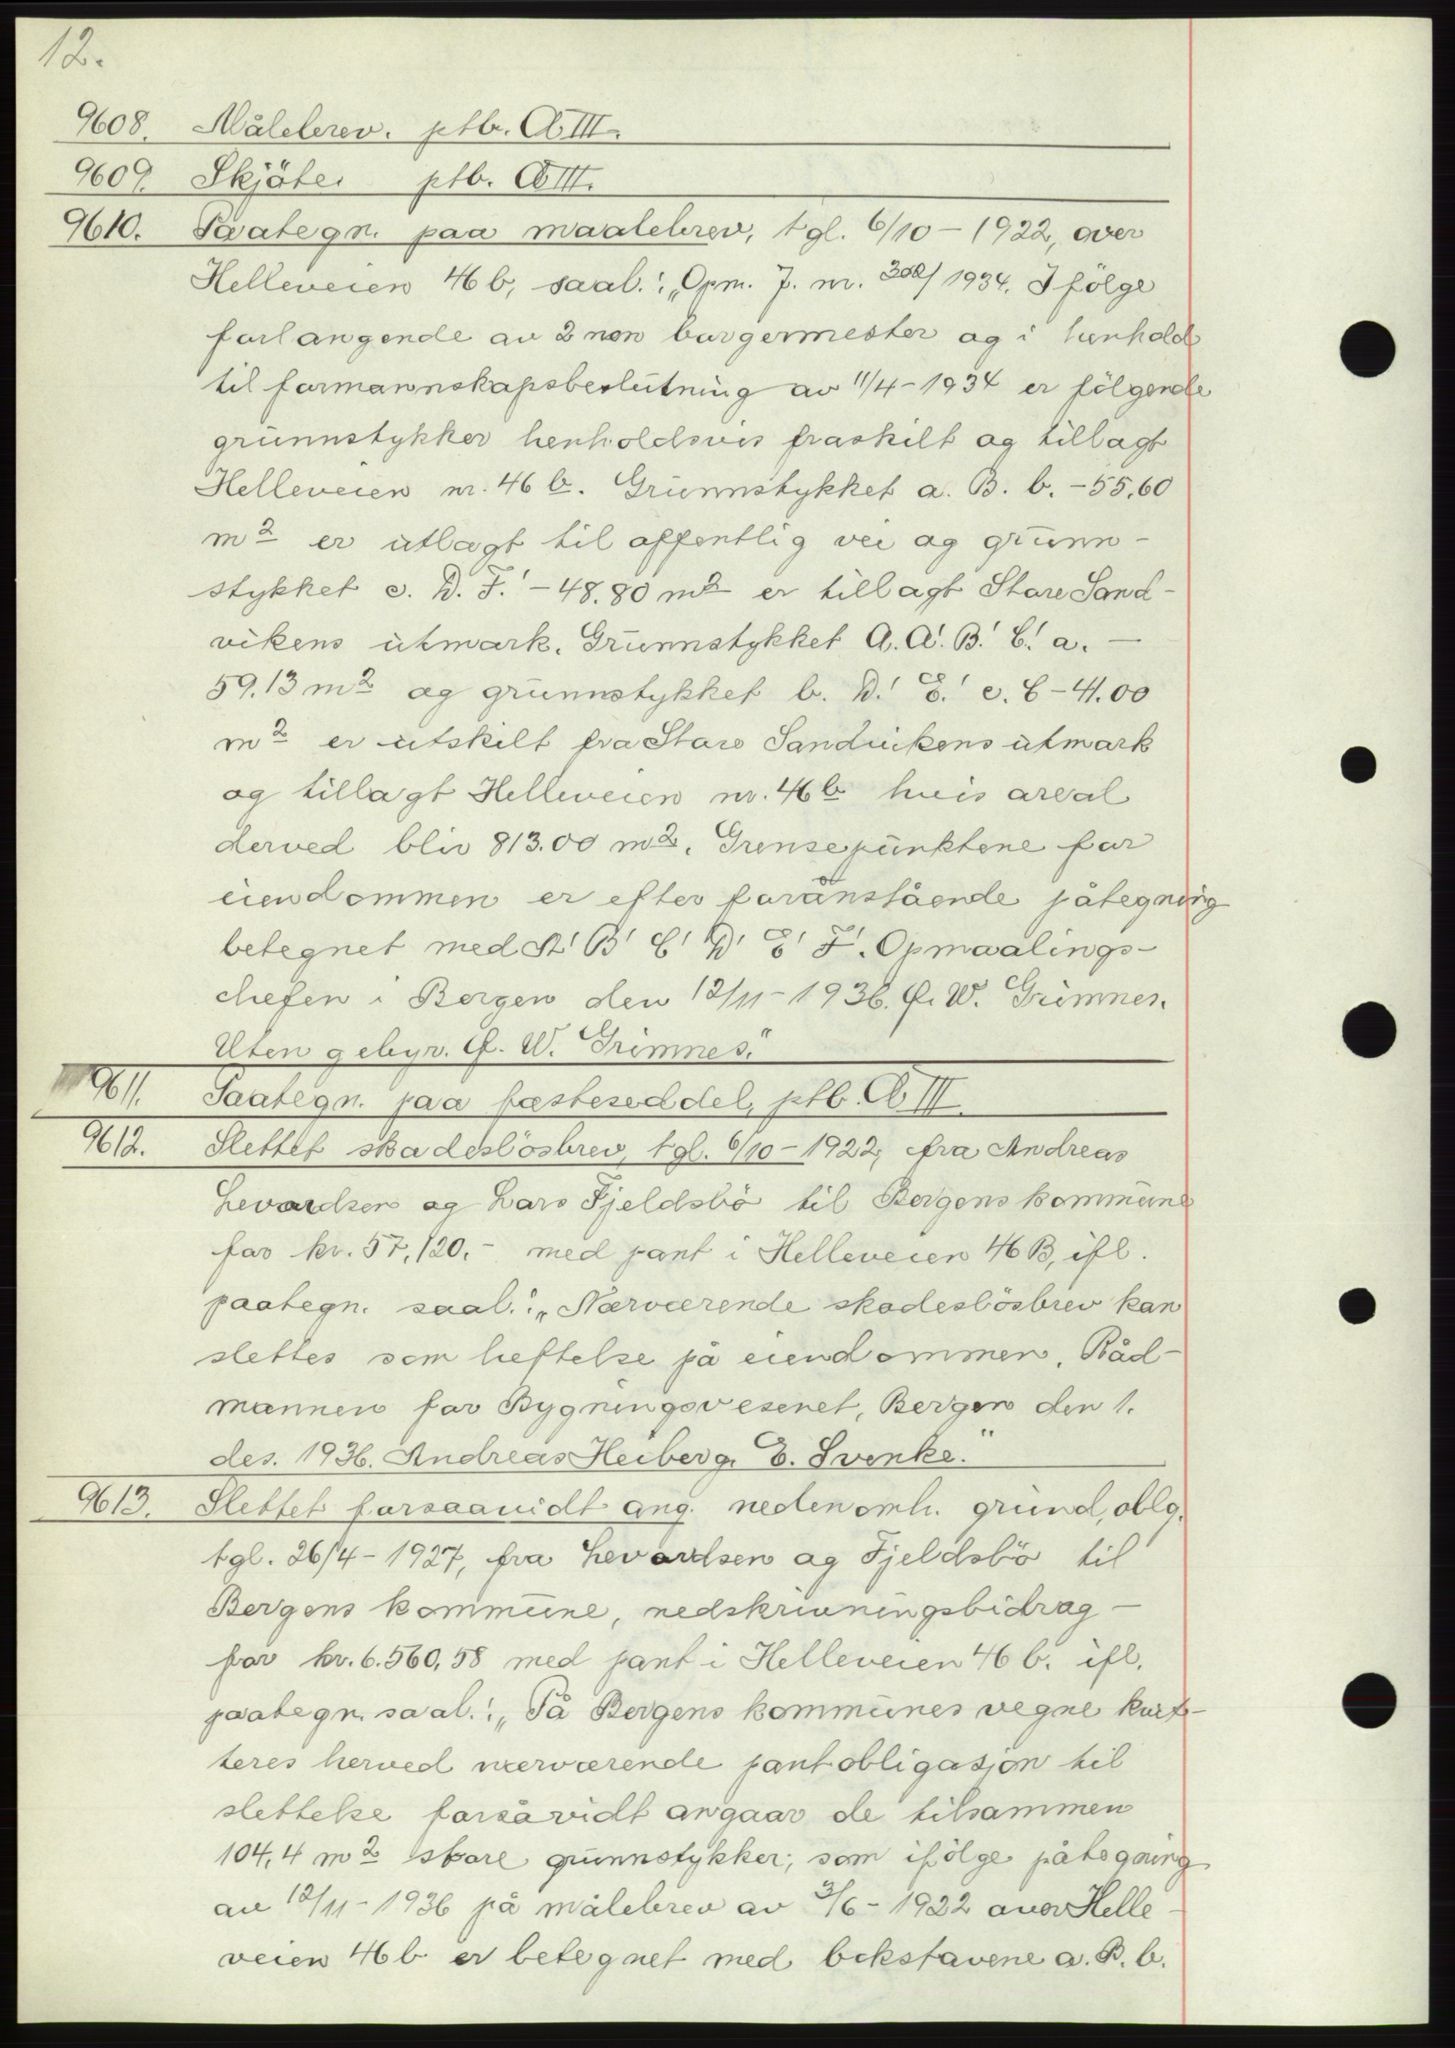 12.
9608. Målebrev. ptb. A III.
9609. Skjöte. ptb. A III.
9610. Paategn. paa maalebrev, tgl. 6/10-1922, over
Helleveien 46b, saal.: „Opm. J. nr. 300/1934. Ifölge
forlangende av 2nen borgermester og i henhold
til formannskapsbeslutning av 11/4-1934 er fölgende
grunnstykker henholdsvis fraskilt og tillagt
Helleveien nr. 46b. Grunnstykket a. B. b. - 55,60
m2 er utlagt til offentlig vei og grunn-
stykket c. D. F.' - 48.80 m2 er tillagt Store Sand-
vikens utmark. Grunnstykket A. A'. B.' C.' a. —
59.13 m2 og grunnstykket b. D.' E.' c. C - 41.00
m2 er utskilt fra Store Sandvikens utmark
og tillagt Helleveien nr. 46b hvis areal
derved blir 813.00 m2. Grensepunktene for
eiendommen er efter foranstående påtegning
betegnet med A' B' C' D' E' F'. Opmaalings-
chefen i Bergen den 12/11-1936. W. Grimnes.
Uten gebyr. W. Grimnes."
9611. Paategn. paa festeseddel, ptb. A III.
9612. Slettet skadeslösbrev, tgl. 6/10-1922, fra Andreas
Levardsen og Lars Fjeldsbö til Bergens kommune
for kr. 57,120.- med pant i Helleveien 46B, ifl.
paategn. saal.: „Nærværende skadeslösbrev kan
slettes som heftelse på eiendommen. Råd-
mannen for Bygningsvesenet, Bergen den 1.
des. 1936. Andreas Heiberg. E. Svenke."
9613. Slettet forsaavidt ang. nedenomh. grund, oblg.
tgl. 26/4-1927, fra Levardsen og Fjeldsbö til
Bergens kommune, nedskrivningsbidrag —
for kr. 6.560,58 med pant i Helleveien 46b. ifl.
paategn. saal.: „På Bergens kommunes vegne kvit-
teres herved nærværende pantobligasjon til
slettelse forsåvidt angaar de tilsammen
104,4 m2 store grunnstykker, som ifölge påtegning
av 12/11-1936 på målebrev av 3/6-1922 over Helle-
veien 46b er betegnet med bokstavene a. B. b.